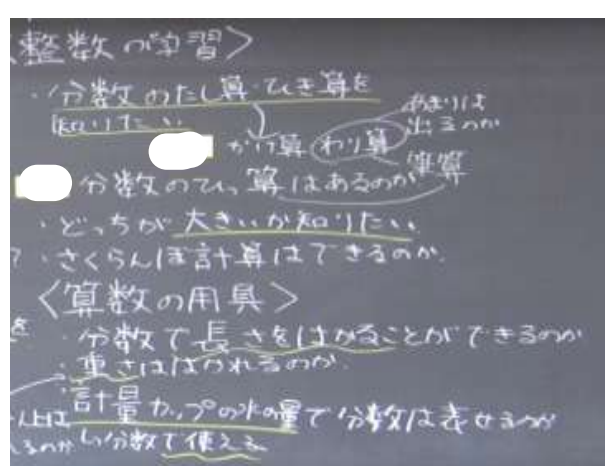 〈整数の学習〉
・分数のたし算・ひき算を
知りたい
あまりは
出るのか
かけ算 わり算
筆算
分数のひっ算はあるのか
・どっちが大きいか知りたい
？・さくらんぼ計算はできるのか.
〈算数の用具〉
を ・分数で長さをはかることができるのか
・重さははかれるのか.
計量カップの水の量で分数は表せるのか
るのか 分数で使える